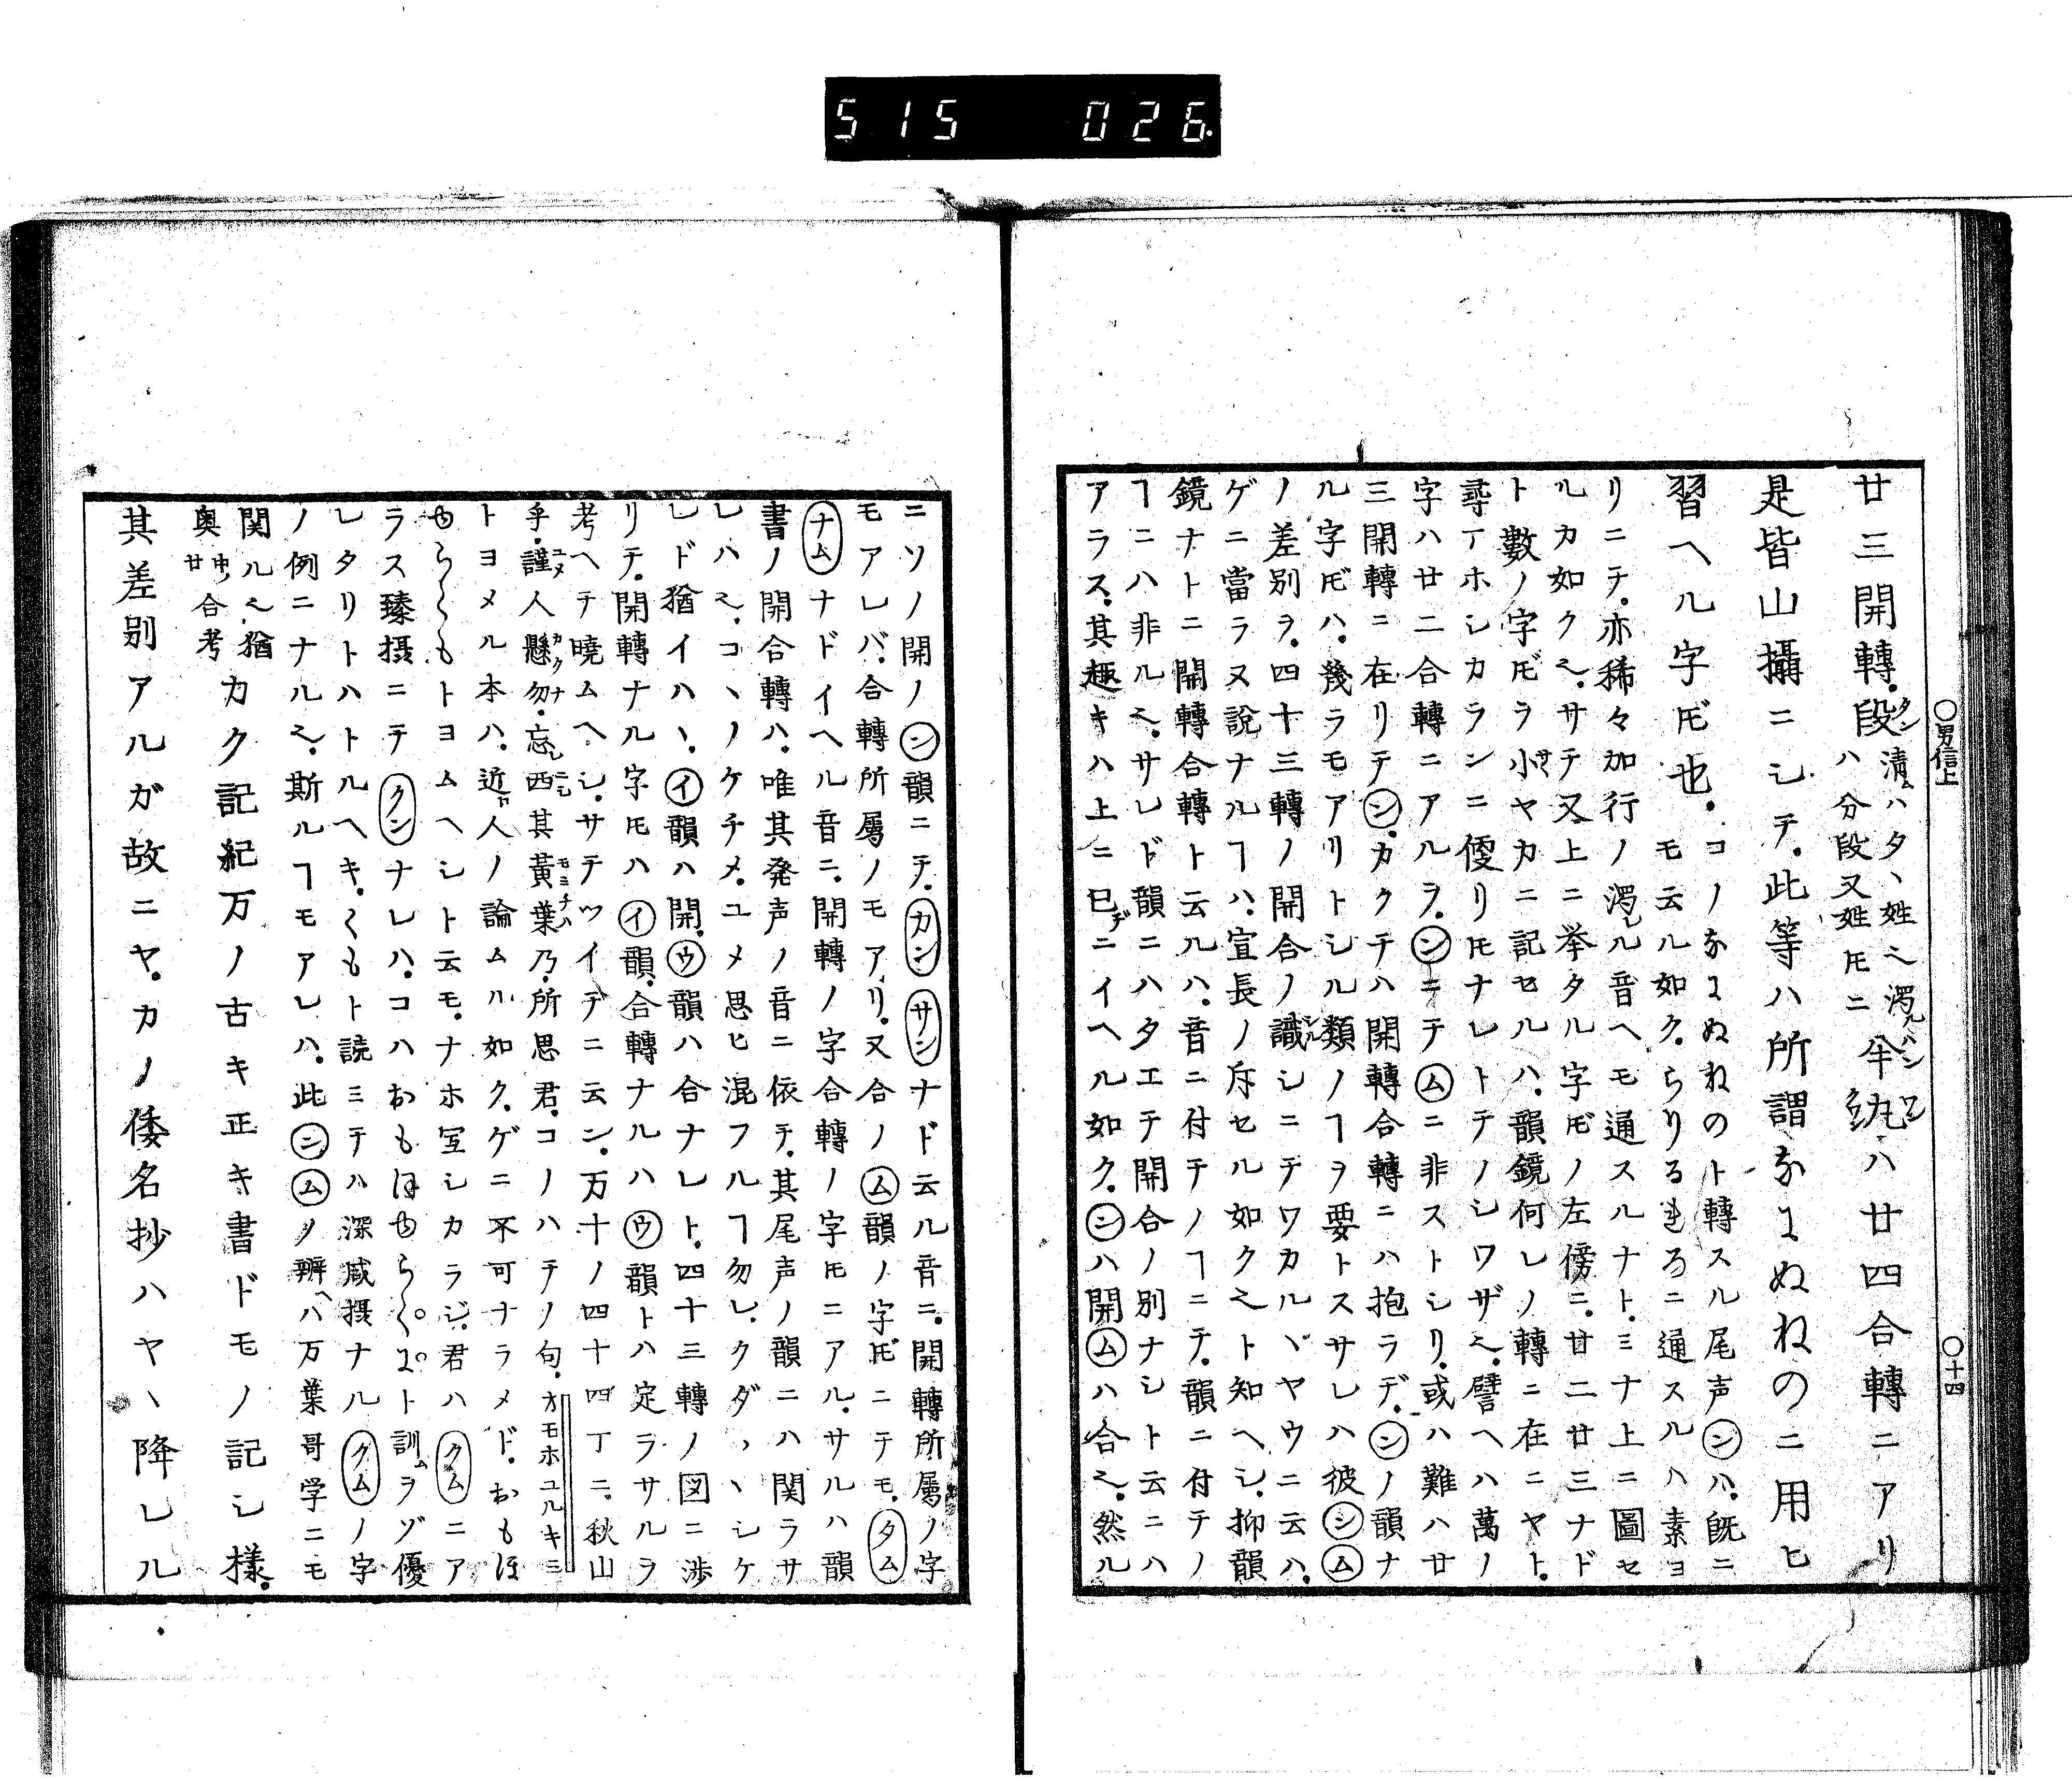 515 026
廿三開轉.段タン清ムハタヽ姓之濁ルバン
ハ分段又姓𪜈ニ
伞紈ワンハ廿四合轉ニアリ
是皆山攝ニシテ.此等ハ所謂なにぬねのニ用ヒ
習ヘル字𪜈也.コノなにぬねのト轉スル尾声ンハ.既ニ
モ云ル如ク.らりるれろニ通スルハ素ヨ
リニテ.亦稀々加行ノ濁ル音ヘモ通スルナト.ミナ上ニ圖セ
ルカ如ク之.サテ又上ニ挙タル字𪜈ノ左傍ニ.廿二廿三ナド
ト數ノ字𪜈ラ小サヤカニ記セルハ.韻鏡何レノ轉ニ在ニヤト.
尋ヿホシカランニ便リ𪜈ナレトテノシワザ之.譬ヘハ萬ノ
字ハ廿二合轉ニアルヲ.ンニテムニ非ストシリ.或ハ難ハ廿
三開轉ニ在リテン.カクテハ開轉合轉ニハ抱ラヂ.ンノ韻ナ
ル字𪜈ハ.幾ラモアリトシル類ノヿヲ要トスサレハ彼ンム
ノ差別ヲ.四十三轉ノ開合ノ識シニテワカルヾヤウニ云ハ.
ゲニ當ラヌ說ナルヿハ.宣長ノ斥セル如ク之ト知ヘシ.抑韻
鏡ナトニ開轉合轉ト云ルハ.音ニ付テノヿニテ.韻ニ付テノ
ヿニハ非ル之.サレド韻ニハタエテ開合ノ別ナシト云ニハ
アラス.其趣キハ上ニ已ヂニイヘル如ク.ンハ開ムハ合之.然ル
○男信上
○十四
ニソノ開ノン韻ニテ.カンサンナド云ル音ニ.開轉所屬ノ字
モアレバ.合轉所屬ノモアリ.又合ノム韻ノ字𪜈ニテモ.タム
ナムナドイヘル音ニ.開轉ノ字合轉ノ字𪜈ニアル.サルハ韻
書ノ開合轉ハ.唯其発声ノ音ニ依テ.其尾声ノ韻ニハ関ラサ
レハ之.コヽノケチメ.ユメ思ヒ混フルヿ勿レ.クダヽヽシケ
レド猶イハヽ.イ韻ハ開.ウ韻ハ合ナレト.四十三轉ノ図ニ渉
リテ.開轉ナル字𪜈ハイ韻.合轉ナルハウ韻トハ定ラサルヲ
考ヘテ曉ムヘシ.サテツイテニ云ン.万十ノ四十四丁ニ.秋山
乎.謹ユメ人懸カクナ勿.忘レニシ西其黃葉モミチハ乃.所思君.コノハテノ句.オモホユルキミ
トヨメル本ハ.近人ノ論ムル如ク.ゲニ不可ナラメド.おもほ
ゆらくもトヨムヘシト云モ.ナホ宜シカラジ.君ハクムニア
ラス臻摂ニテクンナレハ.コハおもほゆらくにト訓ムヲゾ優
レタリトハトルヘキ.くもト読ミテハ深咸摂ナルクムノ字
ノ例ニナル之.斯ルヿモアレハ.此ンムノ辨ヘハ万葉哥学ニモ
関ル之.猶
奥廿中ッ合考
カク記紀万ノ古キ正キ書ドモノ記シ樣.
其差別アルガ故ニヤ.カノ倭名抄ハヤヽ降レル.